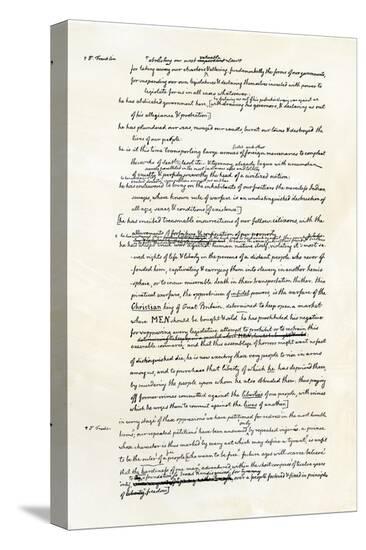 abolishing our most valuable laws
for taking away our charters & altering fundamentally the forms of our governments,
for suspending our own legislatures & declaring themselves invested with power to
legislate for us in all cases whatsoever.
he has abdicated government here, [withdrawing his governors, & declaring us out
of his allegiance & protection]
he has plundered our seas, ravaged our coasts, burnt our towns & destroyed the
lives of our people.
he is at this time transporting large armies of foreign mercenaries to compleat
the works of death, desolation & tyranny already begun with circumstances
of cruelty & perfidy unworthy the head of a civilized nation.
he has endeavored to bring on the inhabitants of our frontiers the merciless Indian
savages, whose known rule of warfare is an undistinguished destruction of
all ages, sexes, & conditions [of existence]
[he has incited treasonable insurrections of our fellow citizens, with the
allurements of forfeiture & confiscation of our property.
he has waged cruel war against human nature itself, violating it's most sa-
cred rights of life & liberty in the persons of a distant people who never of-
fended him, captivating & carrying them into slavery in another hemis-
-phere, or to incur miserable death in their transportation thither. this
piratical warfare, the opprobrium of infidel powers, is the warfare of the
Christian king of Great Britain. determined to keep open a market
where MEN should be bought & sold he has prostituted his negative
for suppressing every legislative attempt to prohibit or to restrain this
execrable commerce and that this assemblage of horrors might want no fact
of distinguished die, he is now exciting those very people to rise in arms
among us, and to purchase that liberty of which he has deprived them,
by murdering the people upon whom he also obtruded them: thus paying
off former crimes committed against the liberties of one people, with crimes
which he urges them to commit against the lives of another.]
in every stage of these oppressions we have petitioned for redress in the most humble
terms; our repeated petitions have been answered only by repeated injuries. a prince
whose character is thus marked by every act which may define a tyrant, is unfit
to be the ruler of a people [who mean to be free. future ages will scarce believe
that the hardiness of one man, adventured within the short compass of twelve years
only over a people fostered & fixed in principles
of freedom]